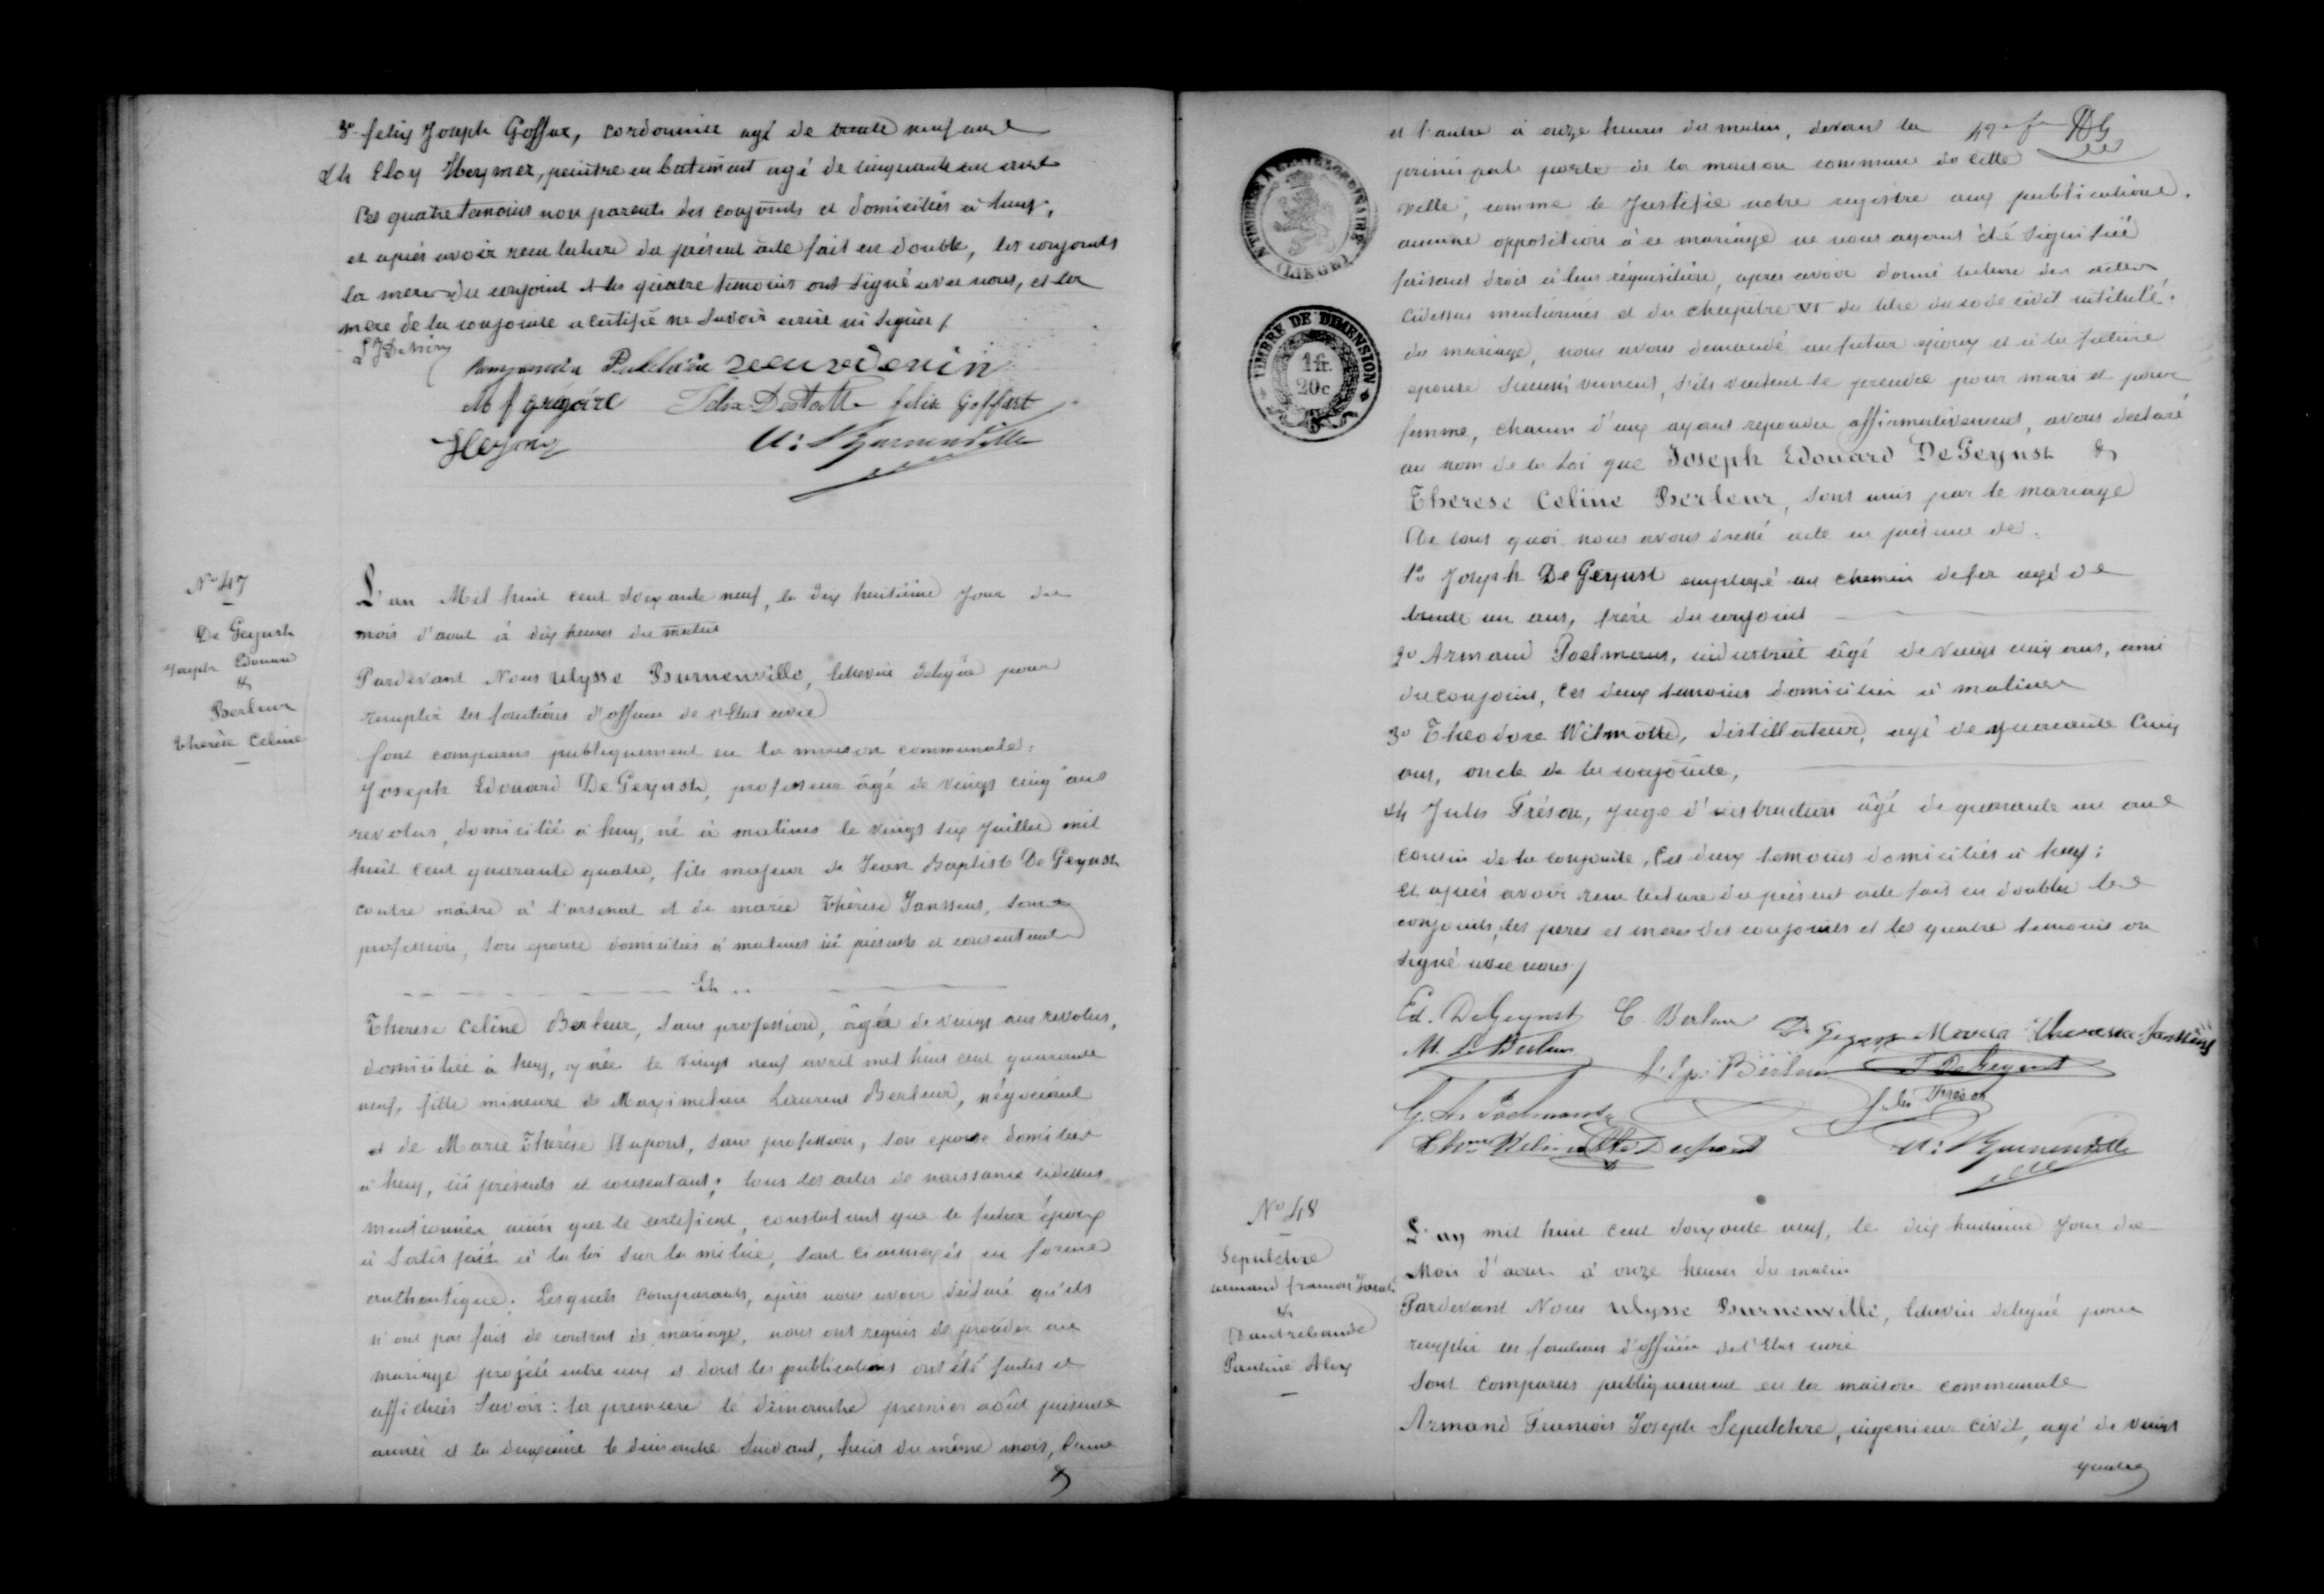 3o felix Joseph Goffar, cordonnier agé de trente neuf ans
4o Eloy Heymez, peintre en batiment agé de cinquante un ans
Ces quatre temoins non parents des conjoints et domiciliés à huy,
et après avoir reçu lecture du présent acte fait en double, les conjoints
la mere du conjoint et les quatre temoins ont signé avec nous, et la
mere de la conjointe a certifié ne savoir ecrire ni signer /
Pulchérie
M J grégoire Felix Destatte felix Goffart
U: Burnenville
No 47
De Geynst
Joseph Edouard
&
Berleur
thérèse Celine
L'an Mil huit cent soixante neuf, le dix huitième jour du
mois d'aout à dix heures du matin
Pardevant Nous Ulysse Burnenville, Echevin délégué pour
remplir les fonctions d'officier de l'Etat civil
sont comparus publiquement en la maison communale:
Joseph Edouard De Geynst, professeur âgé de vingt cinq ans
revolus, domicilié à huy, né à malines le vingt six Juillet mil
huit cent quarante quatre, fils majeur de Jean Baptiste De Geynst
contre maître à l'arsenal et de marie Thérèse Janssens, sans
profession, son epouse domiciliés à malines ici présents et consentant
Et ..
Therese Celine Berleur, sans profession, âgée de vingt ans revolus,
domiciliée à huy, y née le vingt neuf avril mil huit cent quarante
neuf, fille mineure de Maximilien Laurent Berleur, négociant
et de Marie Thérèse Dupont, sans profession, son epouse domiciliés
à huy, ici présents et consentant; tous les actes de naissance cidessus
mentionnés ainsi que le certificat, constatant que le futur époux
à satisfait à la loi sur la milice, sont ci annexés en forme
authentique. Lesquels comparants, après nous avoir déclaré qu'ils
n'ont pas fait de contrat de mariage, nous ont requis de procéder au
mariage projeté entre eux et dont les publications ont été faites et
affichées Savoir: la premiere le dimanche premier août présente
année et la deuxième le dimanche suivant, huit du même mois, l'une
&
et l'autre à onze heures du matin, devant la
principale porte de la maison commune de cette
ville, comme le Justifie notre registre aux publications.
aucune opposition à ce mariage ne nous ayant été signifiée
faisant droit à leur réquisition, après avoir donné lecture des actes
cidessus mentionnés et du chapitre VI du titre du code civil intitulé:
du mariage, nous avons demandé au futur epoux et à la future
epouse s'ils veulent se prendre pour mari et pour
femme, chacun d'eux ayant repondu affirmativement, avons declaré
au nom de la loi que Joseph Edouard De Geynst &
Therese Celine Berleur, sont unis par le mariage
De tout quoi nous avons dressé acte en présence de:
1o Joseph De Geynst employé au chemin de fer agé de
trente un ans, frère du conjoint
2o Armand Poelmans, industriel âgé de vingt cinq ans, ami
du conjoint, Ces deux temoins domiciliés à malines
3o Theodore Wilmotte, distillateur, agé de quarante Cinq
ans, oncle de la conjointe,
4o Jules Fréson, juge d'instruction âgé de quarante un ans
cousin de la conjointe, Ces deux temoins domiciliés à huy:
Et après avoir reçu lecture du présent acte fait en double les
conjoints, les peres et meres des conjoints et les quatre temoins ont
signé avec nous /
Ed. DeGeynst C. Berleur De Geynst Maria Theresia Janssens
M. L. Berleur J. De Geynst
Poelmans Jules Fréson
Wilmotte Dupont U: Burnenville
TIMBRE DE DIMENSION
1 fr.
20c
(LIEGE)
No 48
Sepulchre
armand francois Joseph
&
Dautrebande
Pauline Alix
L'an mil huit cent soixante neuf, le dix huitième jour du
Mois d'aout à onze heures du matin
Pardevant Nous Ulysse Burnenville, Echevin délegué pour
remplir les fonctions d'officier de l'Etat civil
Sont comparus publiquement en la maison communale
Armand Francois Joseph Sepulchre, ingenieur civil, agé de vingt
quatre